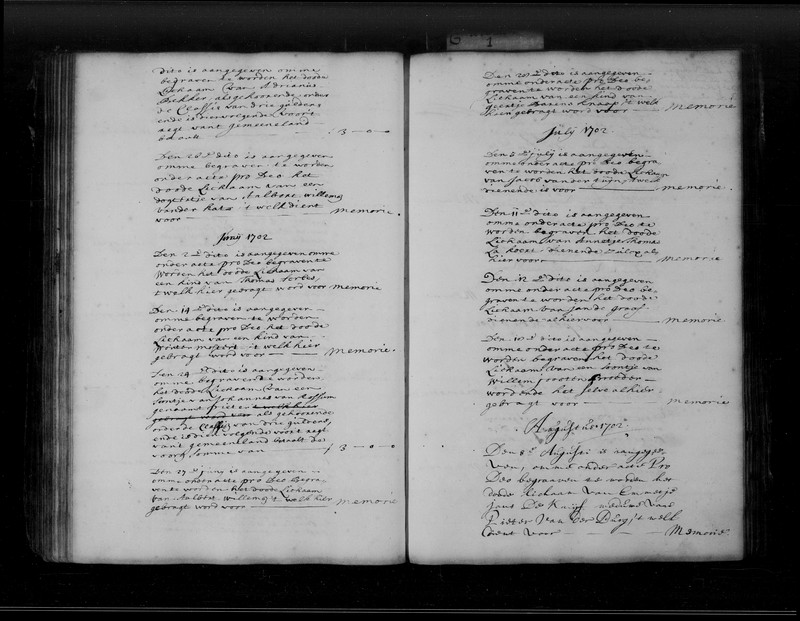 dito is aangegeven omme
begraven te worden het doode
Lichaam van Adrianus
Bekker als gehoorende onder
de Classis van drie guldens
ende is dienvolgende voor 't
regt vant gemeeneland
betaalt f 3 - 0 -
Den 28e dito is aangegeven
omme begraven te worden
onder acte pro Deo het
doode Lichaam van een
dogtertje van Aalbert Willemsz
vander 't welk dient
voor Memorie.
Junij 1702
Den 2e dito is aangegeven omme
onder acte pro Deo begraven te
worden het doode Lichaam van
een kind van Thomas
t welk hier gebragt word voor Memorie
Den 14e dito is aangegeven
omme begraven te worden
onder acte pro Deo het doode
Lichaam van een kind van
Wouter 't welk hier
gebragt word voor Memorie.
Den 24e dito is aangegeven
omme begraven te worden
het doode Lichaam van een
Soontje van Johannes van Rossum
genaamt Pieter t welk hier
gebragt word voor als gehoorende
onder de Classis van drie guldens,
ende is dienvolgende voor 't regt
vant gemeeneland betaalt de
voors. somme van f 3 - 0 - 0
Den 27e Junij is aangegeven
omme onder acte pro Deo begra
ven te worden het doode Lichaam
van Aalbert Willemsz 't welk hier
gebragt word voor Memorie
G 1
Den dito is aangegeven
omme onder acte pro Deo be
graven te worden het doode
Lichaam van een kind van
Geertje Barens Knaap 't welk
hier gebragt word voor Memorie
Julij 1702
Den 8e Julij is aangegeven
omme onder acte pro Deo begra
ven te worden het doode Lichaam
van Jacob van der
dienende is voor Memorie.
Den 11e dito is aangegeven
omme onder acte pro Deo te
worden begraven het doode
Lichaam van Annetje Thomas
dienende
hier voor Memorie
Den 12e dito is aangegeven
omme onder acte pro Deo be
graven te worden het doode
Lichaam van Jan de Graaf
dienende alhier voor Memorie
Den 10e dito is aangegeven
omme onder acte pro Deo te
worden begraven het doode
Lichaam van een Soontje van
Willem Joosten
word ende het selve alhier
gebragt voor Memorie
Augustus 1702
Den 8e Augusti is aangege
ven, omme onder acte Pro
Deo begraaven te worden het
doode Lichaam van Emmetje
Jans De Knijf weduwe van
Pieter Van Der Burg 't welk
dient voor Memorie